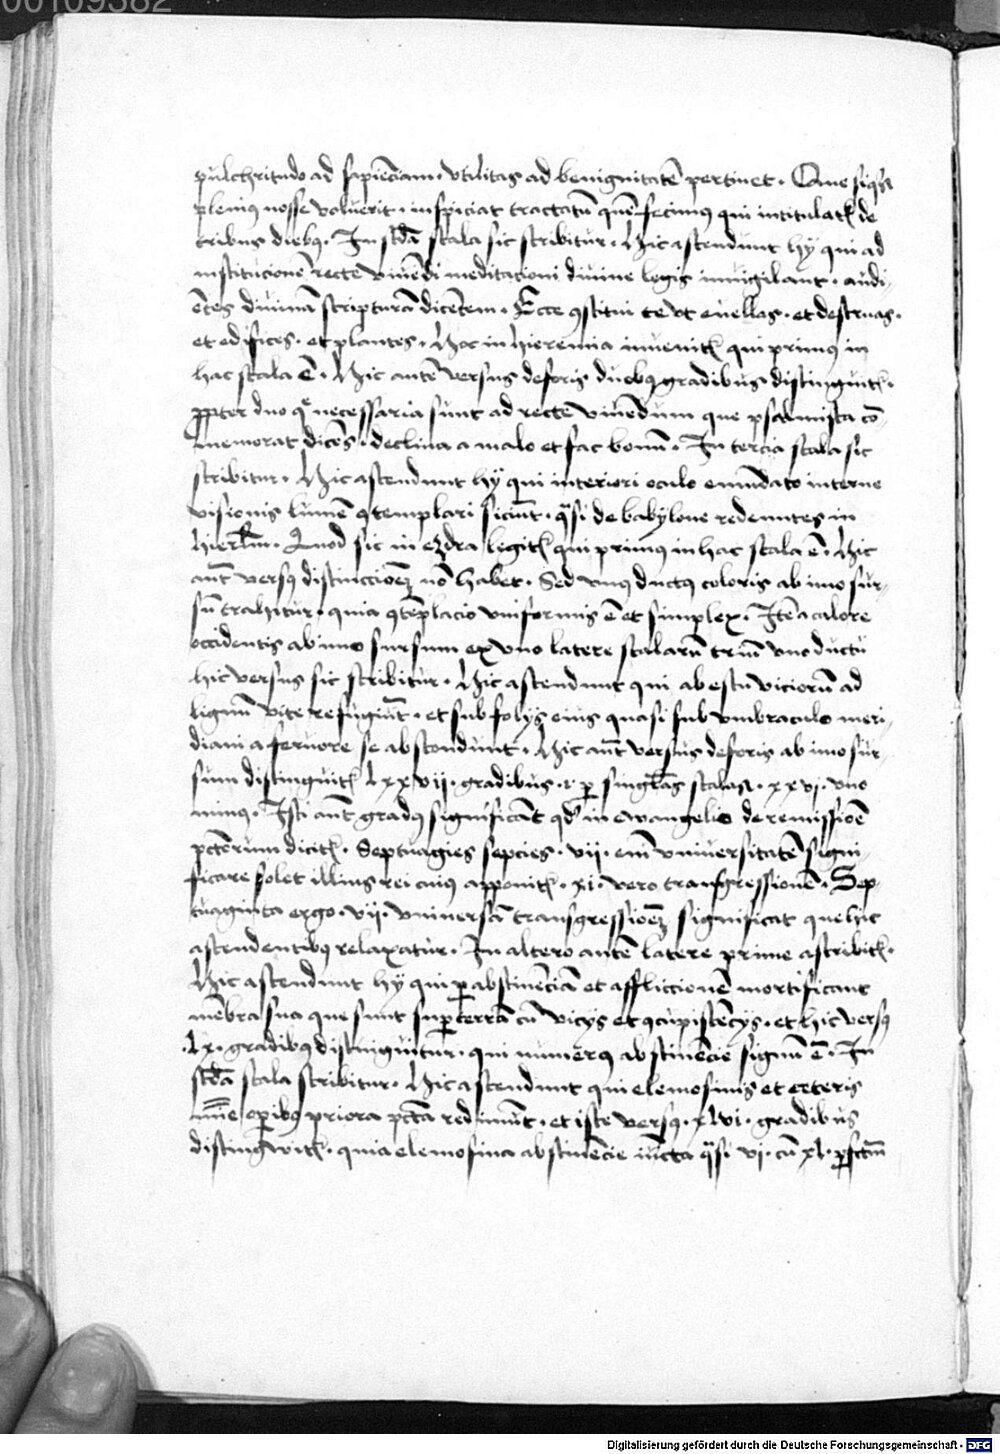 00109382
pulchritudo ad sapiēciam · Vtilitas ad benignitatē pertinet · Que siqs
pleniꝰ nosse voluerit · inspiciat tractatū quē fecimus qui intitulatꝛ de
tribus diebꝰ · In scđa scala sic scribitur · Hic ascendunt hÿ qui ad
institucionē recte viuēdi meditacioni diuine legis inuigilant · audi-
ētes diuinā scripturā dicētem · Ecce ꝯstitui te vt euellas · et destruas ·
et edifices · et plantes · Hoc in Hieremia inuenitꝛ qui primus in
hac scala ē · Hic autē versus deforis duobꝰ gradibus distinguitꝛ ·
ꝓpter duo que necessaria sunt ad recte viuēdum que psalmista cō-
memorat dicēs · declina a malo et fac bonū · In tercia scala sic
scribitur · Hic ascendunt hÿ qui interiori oculo emūdato interne
visionis lumē ꝯtemplari siciūt · qͣsi de babÿlone redeuntes in
Hierl̄m · Quod sic in ezdra legitꝛ qui primus in hac scala ē · Hic
aūt versꝰ distinccioēꝫ nō habet · Sed vnus ductꝰ coloris ab imo sur-
sū trahitur · quia ꝯtēplacio vniformis ē et simplex · Itē a calore
occidentis ab imo sursum ex vno latere scalarū triū vno ductu
hic versus sic scribitur · Hic ascendunt qui ab estu viciorū ad
lignū vite refugiūt · et sub folÿs eius quasi sub vmbraculo meri-
diani a feruore se abscondunt · Hic aūt versus deforis ab imo sur-
sum distinguitꝛ lxxvii · gradibus · i · ꝑ singl̄as scalas · xxvi · vno
minꝰ · Isti aūt gradꝰ significāt qđ in ewangelio de remissioē
pctōrum dicitꝛ · Septuagies sepcies · vii · eni vniuersitatē signi-
ficare solet illius rei cuiꝰ apponitꝛ · xi · vero transgressionē · Sep-
tuaginta ergo · vii · vniuersā transgressioēꝫ significat que hic
ascendentibꝰ relaxatur · In altero autē latere prime ascribitꝛ ·
Hic ascendunt hÿ qui ꝑ abstinēciā et affliccionē mortificant
mēbra sua que sunt suꝑ terrā cū vicÿs et ꝯcupiscēcÿs · et hic versꝰ
· lx · gradibꝰ distinguitur · qui numerꝰ abstinēcie signū ē · In
scđa scala scribitur · Hic ascendunt qui elemosinis et ceteris
mīe oꝑibꝰ priora pctā redimūt · et iste versꝰ · xlvi · gradibus
distingwitꝛ · quia elemosina abstinēcie iūcta qͣsi vi · cū xl · ꝑfctm̄
Digitalisierung gefördert durch die Deutsche Forschungsgemeinschaft - DFG